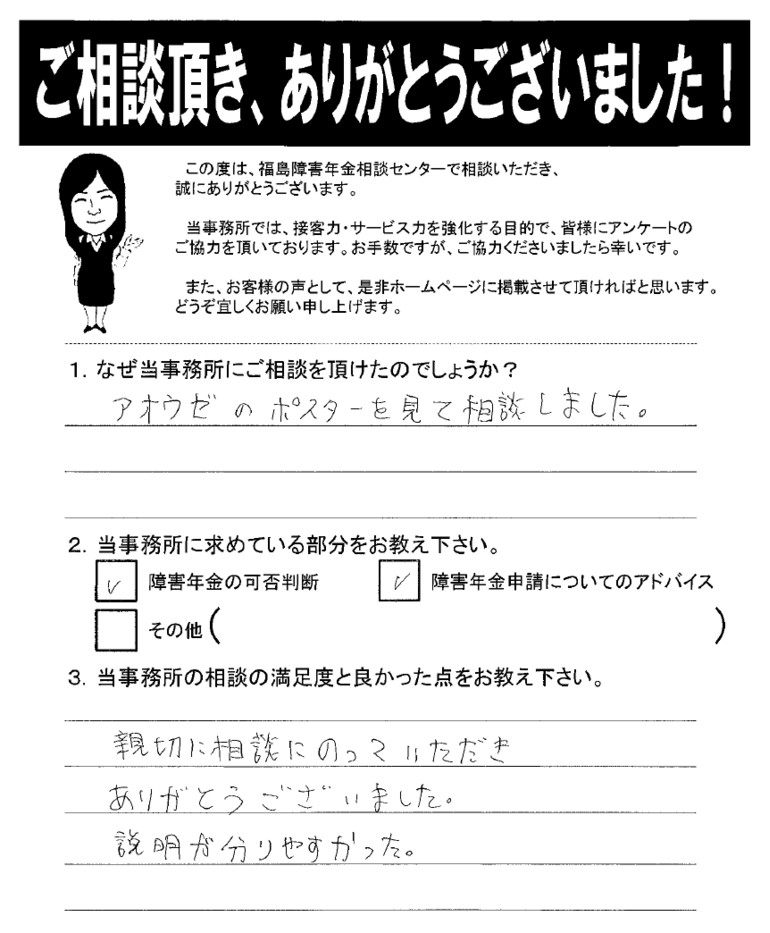 ご相談頂き、ありがとうございました！
この度は、福島障害年金相談センターで相談いただき、
誠にありがとうございます。
当事務所では、接客力・サービス力を強化する目的で、皆様にアンケートの
ご協力を頂いております。お手数ですが、ご協力くださいましたら幸いです。
また、お客様の声として、是非ホームページに掲載させて頂ければと思います。
どうぞ宜しくお願い申し上げます。
1. なぜ当事務所にご相談を頂けたのでしょうか？
アオウゼのポスターを見て相談しました。
2. 当事務所に求めている部分をお教え下さい。
✓ 障害年金の可否判断 ✓ 障害年金申請についてのアドバイス
その他（ ）
3. 当事務所の相談の満足度と良かった点をお教え下さい。
親切に相談にのっていただき
ありがとうございました。
説明が分りやすかった。